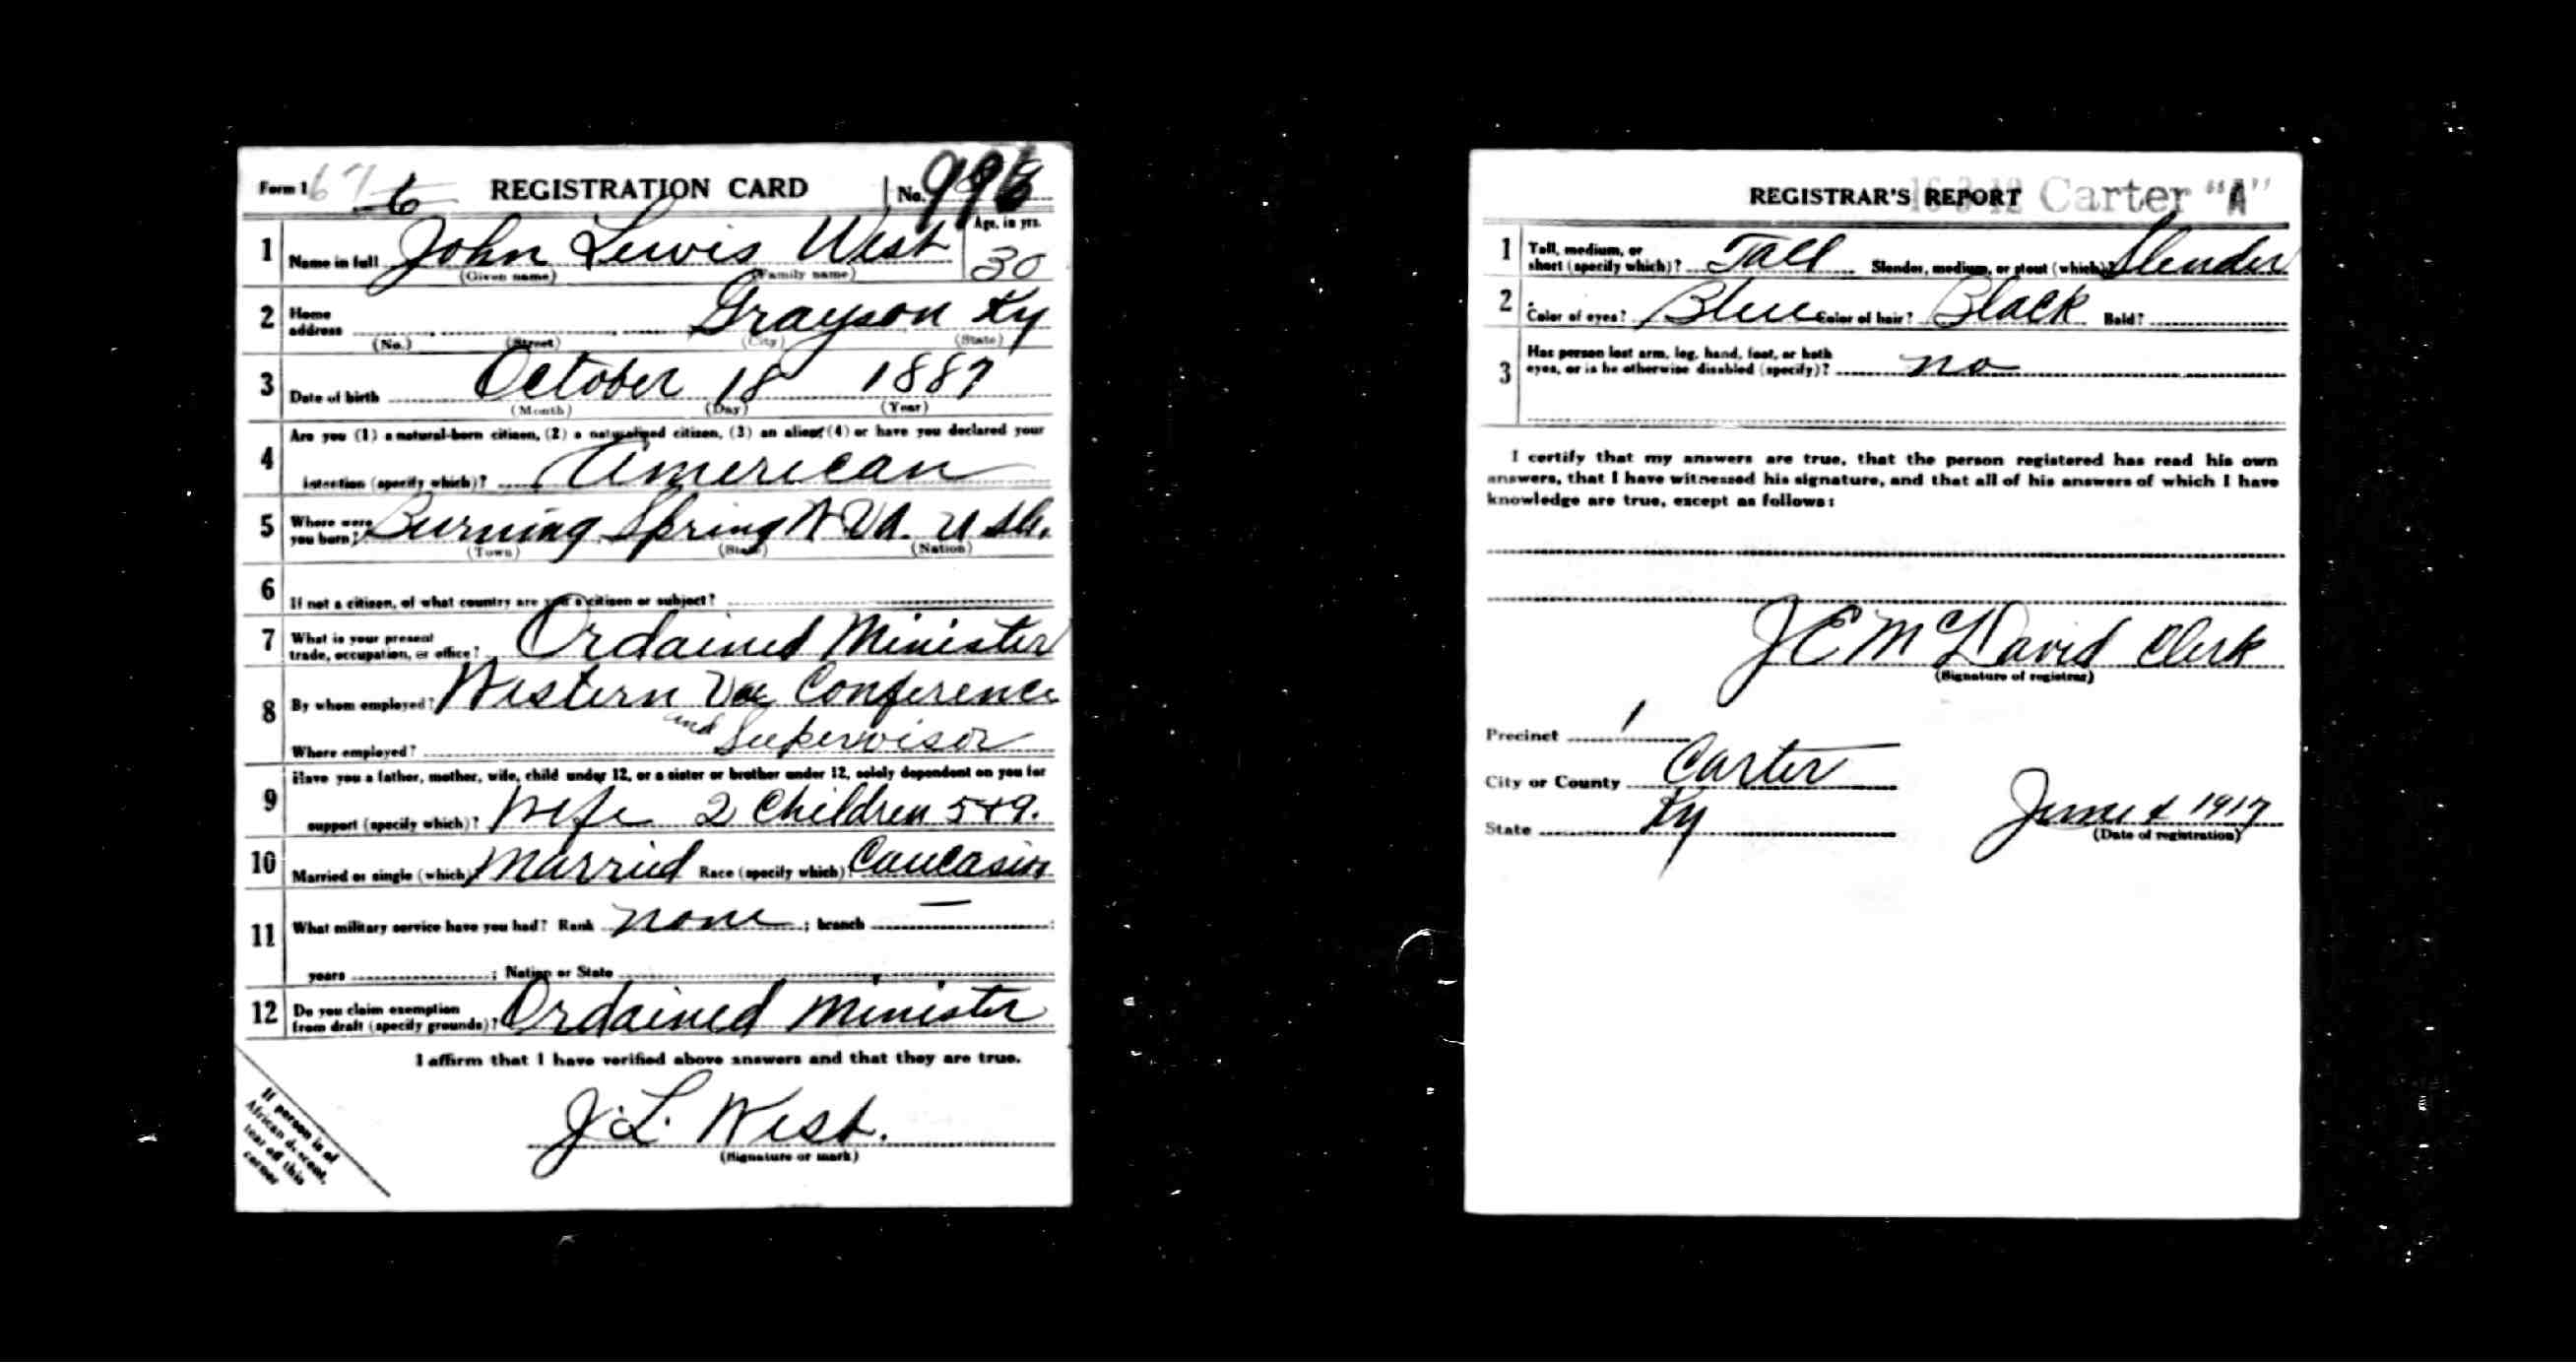 Form 1 67 6 REGISTRATION CARD No.
1 Name in full John Lewis West Age, in yrs. 30
(Given name) (Family name)
2 Home address Grayson Ky
(No.) (Street) (City) (State)
3 Date of birth October 18 1887
(Month) (Day) (Year)
4 Are you (1) a natural-born citizen, (2) a naturalized citizen, (3) an alien, (4) or have you declared your
intention (specify which)? American
5 Where were you born? Burning Spring W Va. U.S.A.
(Town) (State) (Nation)
6 If not a citizen, of what country are you a citizen or subject?
7 What is your present trade, occupation, or office? Ordained Minister
8 By whom employed? Western Va Conference
and
Where employed? Supervisor
9 Have you a father, mother, wife, child under 12, or a sister or brother under 12, solely dependent on you for
support (specify which)? Wife 2 Children 5 & 9.
10 Married or single (which)? Married Race (specify which)? Caucasin
11 What military service have you had? Rank none ; branch —
years ; Nation or State
12 Do you claim exemption from draft (specify grounds)? Ordained Minister
I affirm that I have verified above answers and that they are true.
J. L. West.
(Signature or mark)
If person is of
African descent,
tear off this
corner
REGISTRAR'S REPORT 16-3-12 Carter "A"
1 Tall, medium, or short (specify which)? Tall Slender, medium, or stout (which)? Slender
2 Color of eyes? Blue Color of hair? Black Bald?
3 Has person lost arm, leg, hand, foot, or both
eyes, or is he otherwise disabled (specify)? no
I certify that my answers are true, that the person registered has read his own
answers, that I have witnessed his signature, and that all of his answers of which I have
knowledge are true, except as follows:
J E McDavid Clerk
(Signature of registrar)
Precinct 1
City or County Carter
State Ky June 1917
(Date of registration)